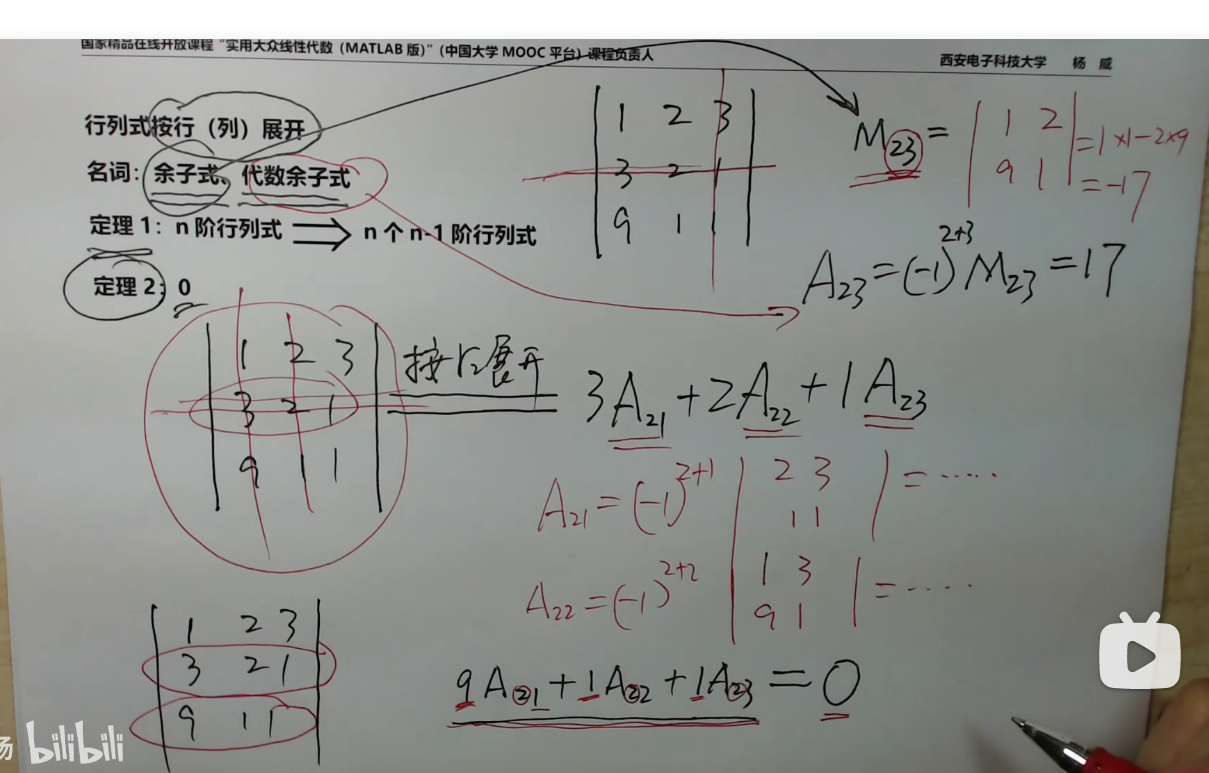 国家精品在线开放课程“实用大众线性代数（MATLAB 版）”（中国大学 MOOC 平台）课程负责人
西安电子科技大学 杨 威
行列式按行（列）展开
名词：余子式、代数余子式
定理 1：n 阶行列式 ⟹ n 个 n-1 阶行列式
定理 2：0
| 1 2 3 |
| 3 2 1 |
| 9 1 1 |
M₂₃ = | 1 2 |
| 9 1 | = 1×1-2×9
= -17
A₂₃ = (-1)²⁺³ M₂₃ = 17
| 1 2 3 |
| 3 2 1 |
| 9 1 1 |
按r₂展开
3A₂₁ + 2A₂₂ + 1A₂₃
A₂₁ = (-1)²⁺¹ | 2 3 |
| 1 1 | = ·····
A₂₂ = (-1)²⁺² | 1 3 |
| 9 1 | = ·····
| 1 2 3 |
| 3 2 1 |
| 9 1 1 |
9A₂₁ + 1A₂₂ + 1A₂₃ = 0
bilibili